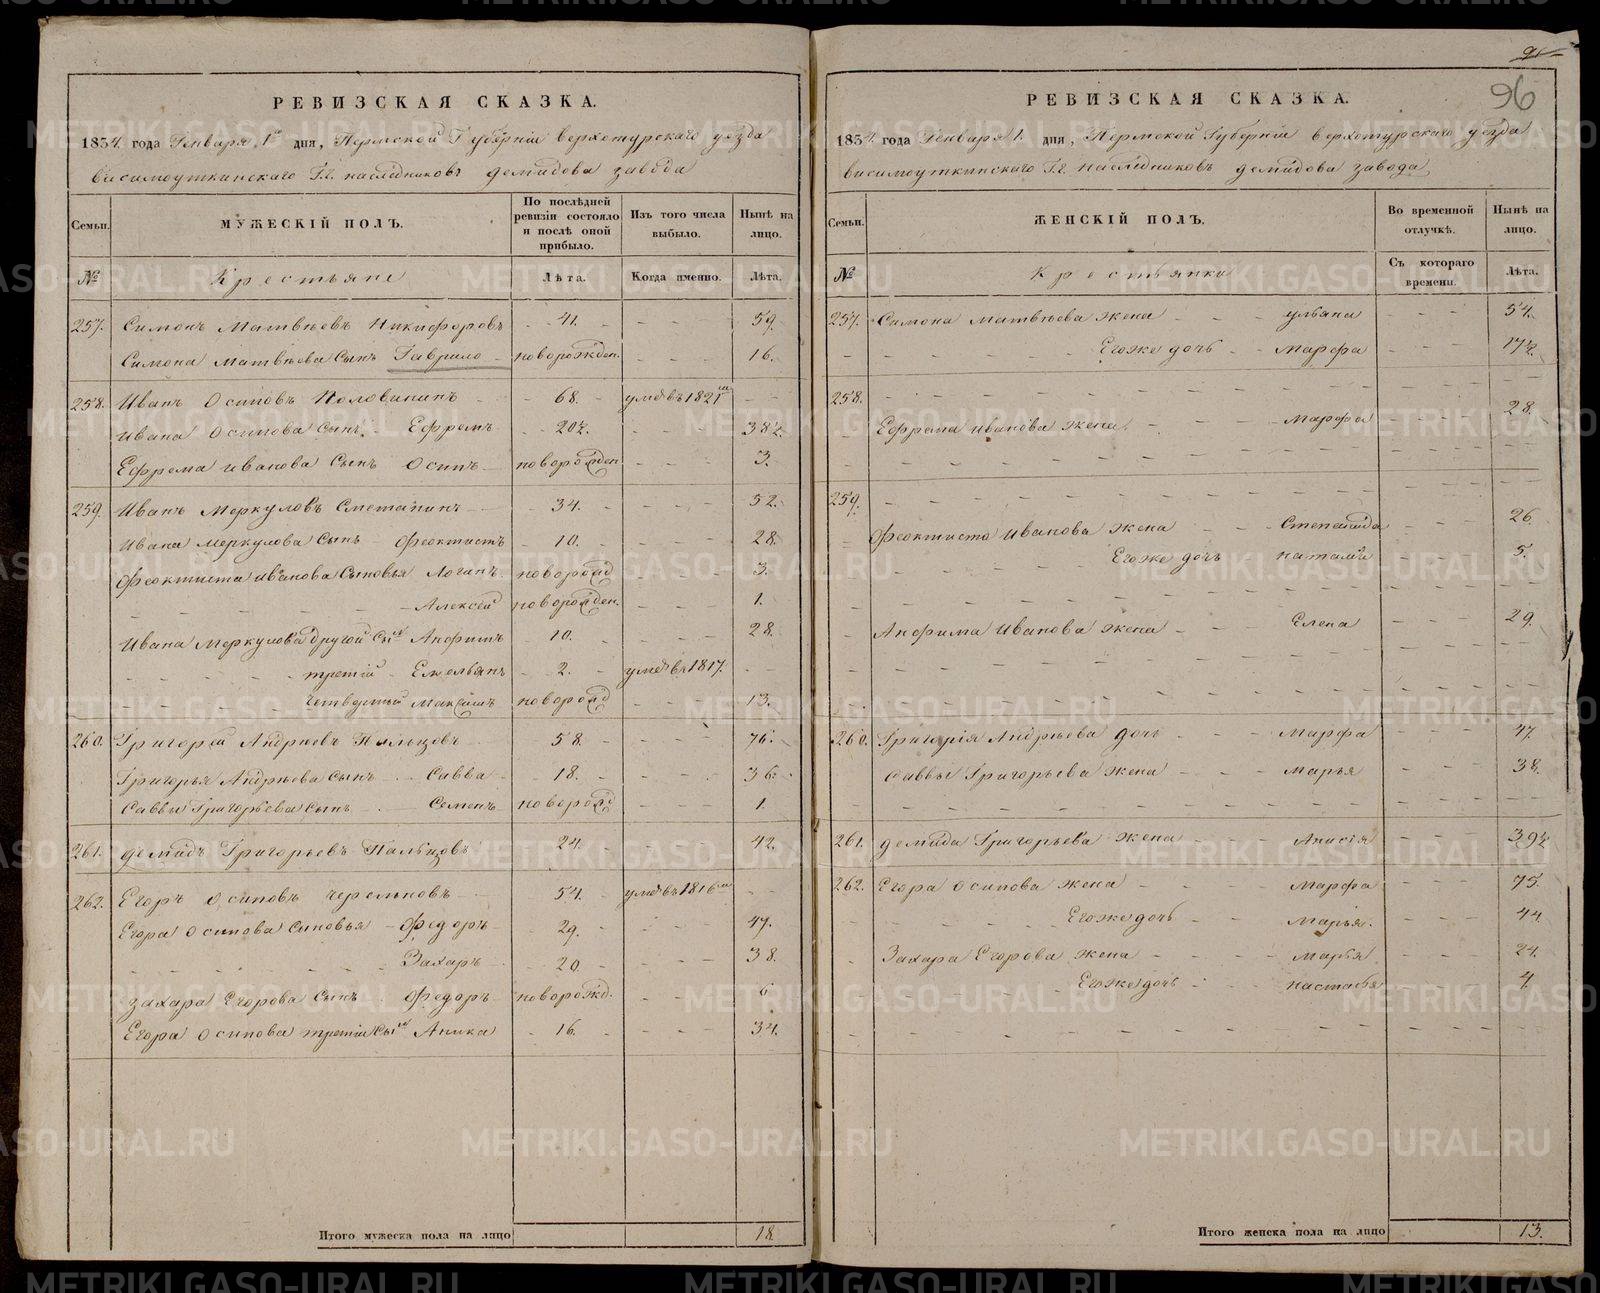 РЕВИЗСКАЯ СКАЗКА.
1834. года Генваря 1го дня, Пермской Губерніи верхотурскаго уезда
висимоуткинскаго Г.г. наследниковъ демидова завода
Семьи. МУЖЕСКІЙ ПОЛЪ. По послѣдней ревизіи состояло и послѣ оной прибыло. Изъ того числа выбыло. Нынѣ на лицо.
№ Крестьяне Лѣта. Когда именно. Лѣта.
257. Симонъ Матвѣевъ Никифоровъ 41. 59.
Симона Матвѣева Сынъ Гаврило новорожден. 16.
258. Иванъ Осиповъ Половининъ 68. умре въ 1821м
Ивана Осипова Сынъ Ефремъ 20½. 38½.
Ефрема иванова Сынъ Осипъ новорожден. 3.
259. Иванъ Меркуловъ Сметанинъ 34. 52.
Ивана Меркулова Сынъ Феоктистъ 10. 28.
Феоктиста иванова Сыновья Логинъ новорожд 3.
Алексей новорожден. 1.
Ивана Меркулова другой Сынъ Анфимъ 10. 28.
третій Емельянъ 2. умре въ 1817.
четвертый Максимъ новорожд 13.
260. Григорей Андреевъ Пальцовъ 58. 76.
Григорья Андреева Сынъ Савва 18. 36.
Саввы Григорьева Сынъ Семенъ новорожд 1.
261. демидъ Григорьевъ Пальцовъ 24. 42.
262. Егоръ Осиповъ Черепновъ 54. умре въ 1816м
Егора Осипова Сыновья Федоръ 29. 47.
Захаръ 20. 38.
Захара Егорова Сынъ Федоръ новорожд. 6
Егора Осипова третій Сынъ Аника 16. 34.
Итого мужеска пола на лицо 18.
91
96
РЕВИЗСКАЯ СКАЗКА.
1834. года Генваря 1. дня, Пермской Губерніи верхотурскаго уезда
висимоуткинскаго Г.г. наследниковъ демидова завода
Семьи. ЖЕНСКІЙ ПОЛЪ. Во временной отлучкѣ. Нынѣ на лицо.
№ Крестьянки Съ котораго времени. Лѣта.
257. Симона Матвѣева жена ульяна 54.
Его же дочь Марфа 17½.
258.
Ефрема иванова жена Марфа 28.
259.
Феоктиста иванова жена Степанида 26.
Его же дочь наталья 5.
Анфима Иванова жена Елена 29.
260. Григорія Андреева дочь Марфа 47.
Саввы Григорьева жена Марья 38.
261. демида Григорьева жена Анисія 39½
262. Егора Осипова жена Марфа 75.
Его же дочь Марья. 44.
Захара Егорова жена Марья 24.
Его же дочь настасья 4.
Итого женска пола на лицо 13.
METRIKI.GASO-URAL.RU